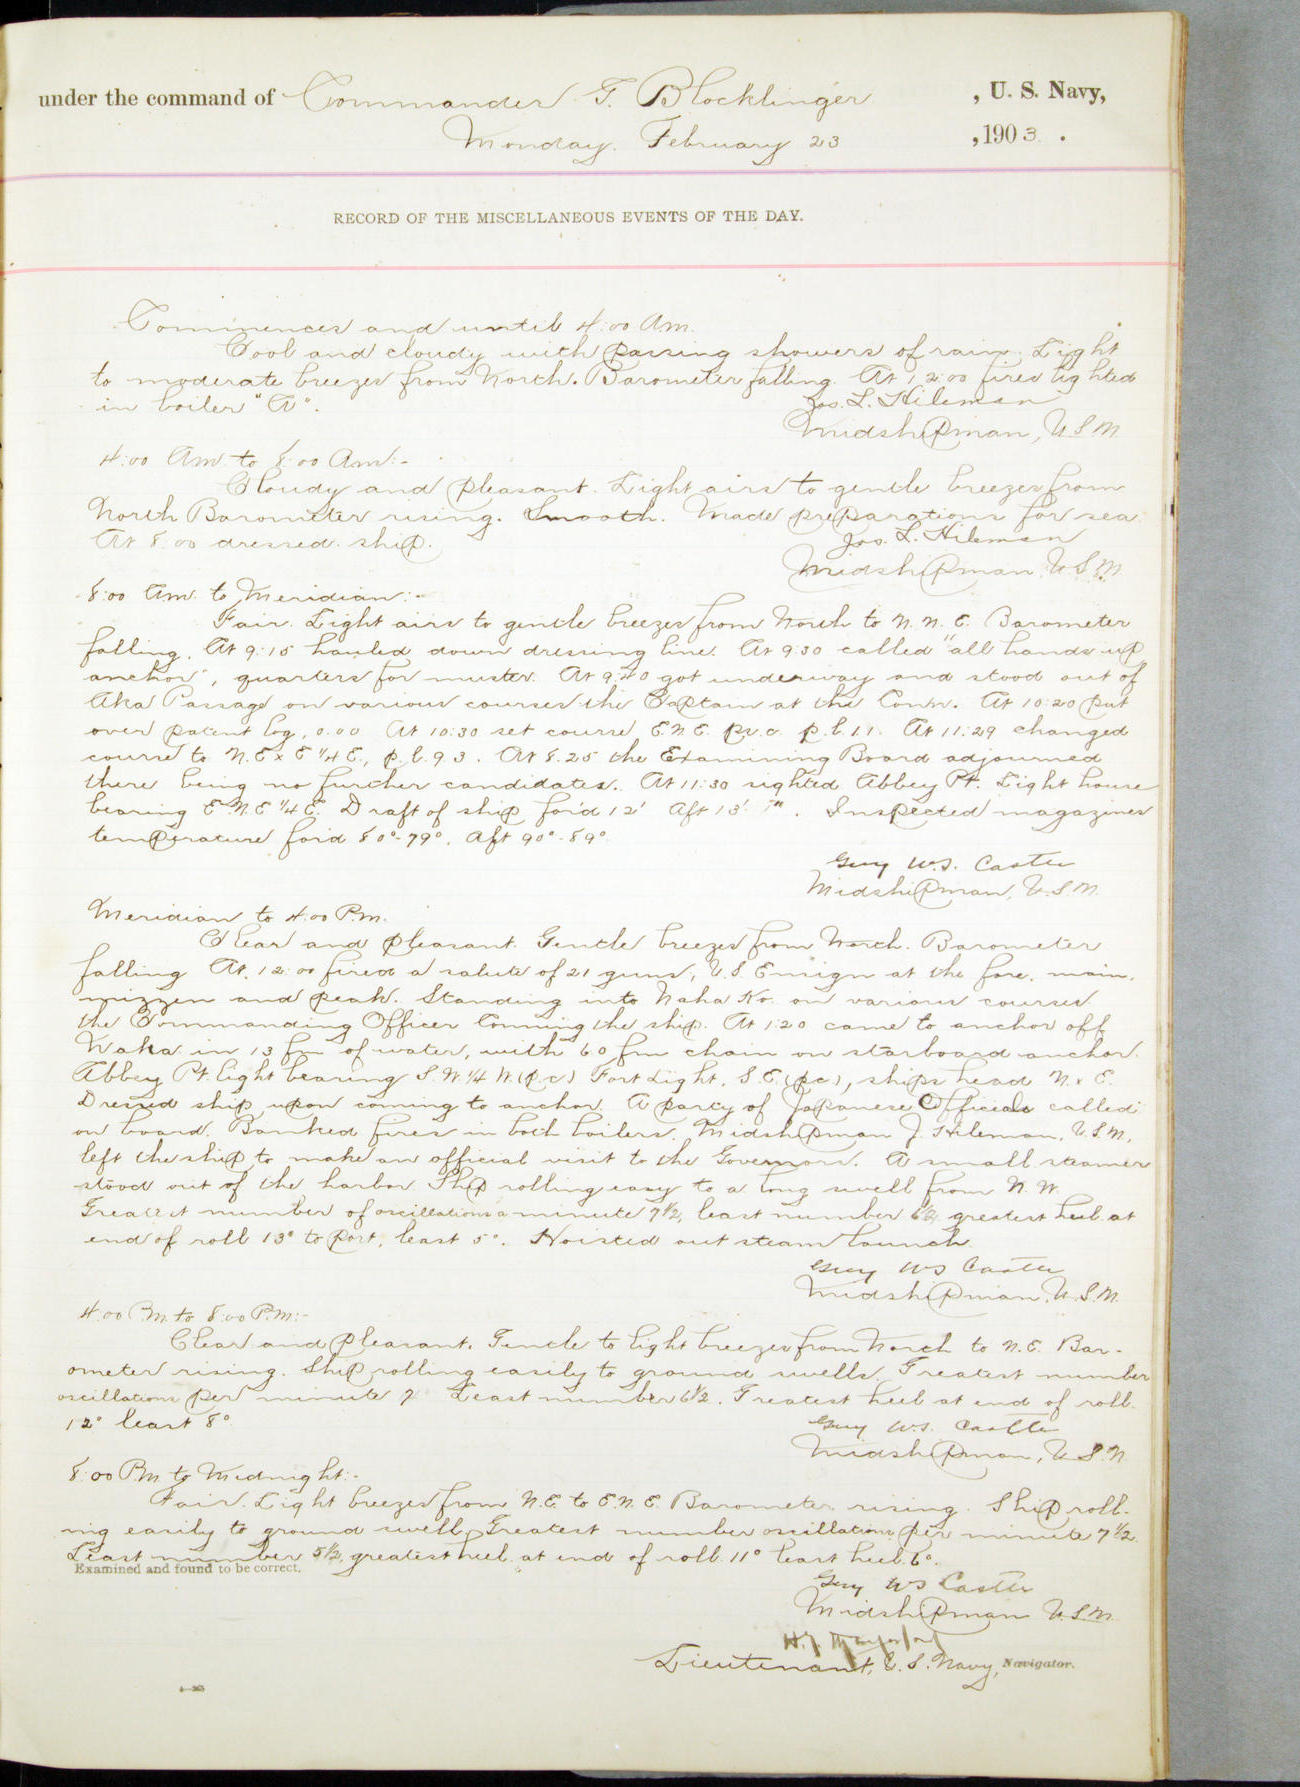 under the command of Commander G. Blocklinger, U. S. Navy,
Monday. February 23, 1903.
RECORD OF THE MISCELLANEOUS EVENTS OF THE DAY.
Commences and until 4:00 Am.
Cool and cloudy with passing showers of rain. Light
to moderate breezes from North. Barometer falling. At 12:00 fires lighted
in boiler "A".
Jos. L. Hileman
Midshipman, U.S.N.
4:00 Am. to 8:00 Am:-
Cloudy and pleasant. Light airs to gentle breezes from
North Barometer rising. Smooth. Made preparations for sea.
At 8:00 dressed ship.
Jos. L. Hileman
Midshipman, U.S.N.
8:00 Am. to Meridian:-
Fair. Light airs to gentle breezes from North to N.N.E. Barometer
falling. At 9:15 hauled down dressing line. At 9:30 called "all hands up
anchor", quarters for muster. At 9:40 got underway and stood out of
Aka Passage on various courses the Captain at the Conn. At 10:20 put
over patent log, 0.00 At 10:30 set course E.N.E. p.s.c. p.l. 1.1. At 11:29 changed
course to N.E x E 1/4 E., p.l. 9.3. At 8.25 the Examining Board adjourned
there being no further candidates. At 11:30 sighted Abbey Pt. Light house
bearing E.N.E 1/4 E. Draft of ship for'd 12' Aft 13'. Inspected magazines
temperature for'd 80°-79°. Aft 90°-89°.
Guy W.S. Castle
Midshipman, U.S.N.
Meridian to 4:00 P.m.
Clear and pleasant. Gentle breezes from North. Barometer
falling At. 12:00 fired a salute of 21 guns, U.S Ensign at the fore, main,
mizzen and peak. Standing into Naha Ko. on various courses
the Commanding Officer Conning the ship. At 1:20 came to anchor off
Naha in 13 fm of water, with 60 fm chain on starboard anchor.
Abbey Pt. light bearing S.W. 1/4 W. (p.c.) Fort Light, S.E. (p.c.), ships head N. x E.
Dressed ship upon coming to anchor. A party of Japanese Officials called
on board. Banked fires in both boilers. Midshipman J. Hileman, U.S.N.
left the ship to make an official visit to the Governor. A small steamer
stood out of the harbor Ship rolling easy to a long swell from N.W.
Greatest number of oscillations a minute 7 1/2, least number greatest heel at
end of roll 13° to port, least 5°. Hoisted out steam launch.
Guy W.S Castle
Midshipman, U.S.N.
4:00 P.M. to 8:00 P.M:-
Clear and pleasant. Gentle to light breezes from North to N.E. Bar-
ometer rising. Ship rolling easily to ground swells. Greatest number
oscillations per minute 7 Least number 6 1/2. Greatest heel at end of roll.
12° least 8°
Guy W.S. Castle
Midshipman, U.S.N.
8:00 P.M to Midnight:-
Fair. Light breezes from N.E. to E.N.E. Barometer rising. Ship roll-
ing easily to ground swell. Greatest number oscillations per minute 7 1/2.
Least number 5 1/2, greatest heel at end of roll 11° least heel 6°.
Examined and found to be correct.
Guy W.S Castle
Midshipman U.S.N.
Lieutenant, U.S. Navy, Navigator.